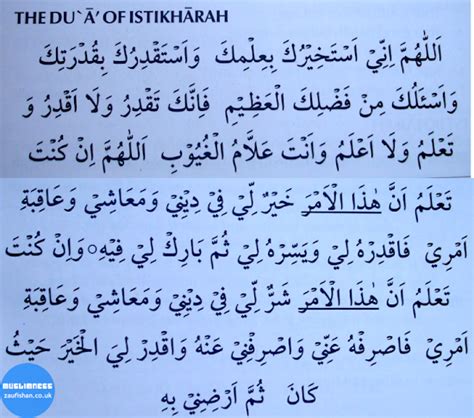 THE DU`Ā’ OF ISTIKHĀRAH
اَللّٰهُمَّ اِنِّيْ اَسْتَخِيْرُكَ بِعِلْمِكَ وَاَسْتَقْدِرُكَ بِقُدْرَتِكَ
وَاَسْئَلُكَ مِنْ فَضْلِكَ الْعَظِيْمِ فَاِنَّكَ تَقْدِرُ وَلَا اَقْدِرُ وَ
تَعْلَمُ وَلَا اَعْلَمُ وَاَنْتَ عَلَّامُ الْغُيُوْبِ اَللّٰهُمَّ اِنْ كُنْتَ
تَعْلَمُ اَنَّ هٰذَا الْاَمْرَ خَيْرٌ لِّيْ فِيْ دِيْنِيْ وَمَعَاشِيْ وَعَاقِبَةِ
اَمْرِيْ فَاقْدِرْهُ لِيْ وَيَسِّرْهُ لِيْ ثُمَّ بَارِكْ لِيْ فِيْهِ ○ وَاِنْ كُنْتَ
تَعْلَمُ اَنَّ هٰذَا الْاَمْرَ شَرٌّ لِّيْ فِيْ دِيْنِيْ وَمَعَاشِيْ وَعَاقِبَةِ
اَمْرِيْ فَاصْرِفْهُ عَنِّيْ وَاصْرِفْنِيْ عَنْهُ وَاقْدِرْ لِيَ الْخَيْرَ حَيْثُ
كَانَ ثُمَّ اَرْضِنِيْ بِهِ
MUSLIMNESS
zaufishan.co.uk